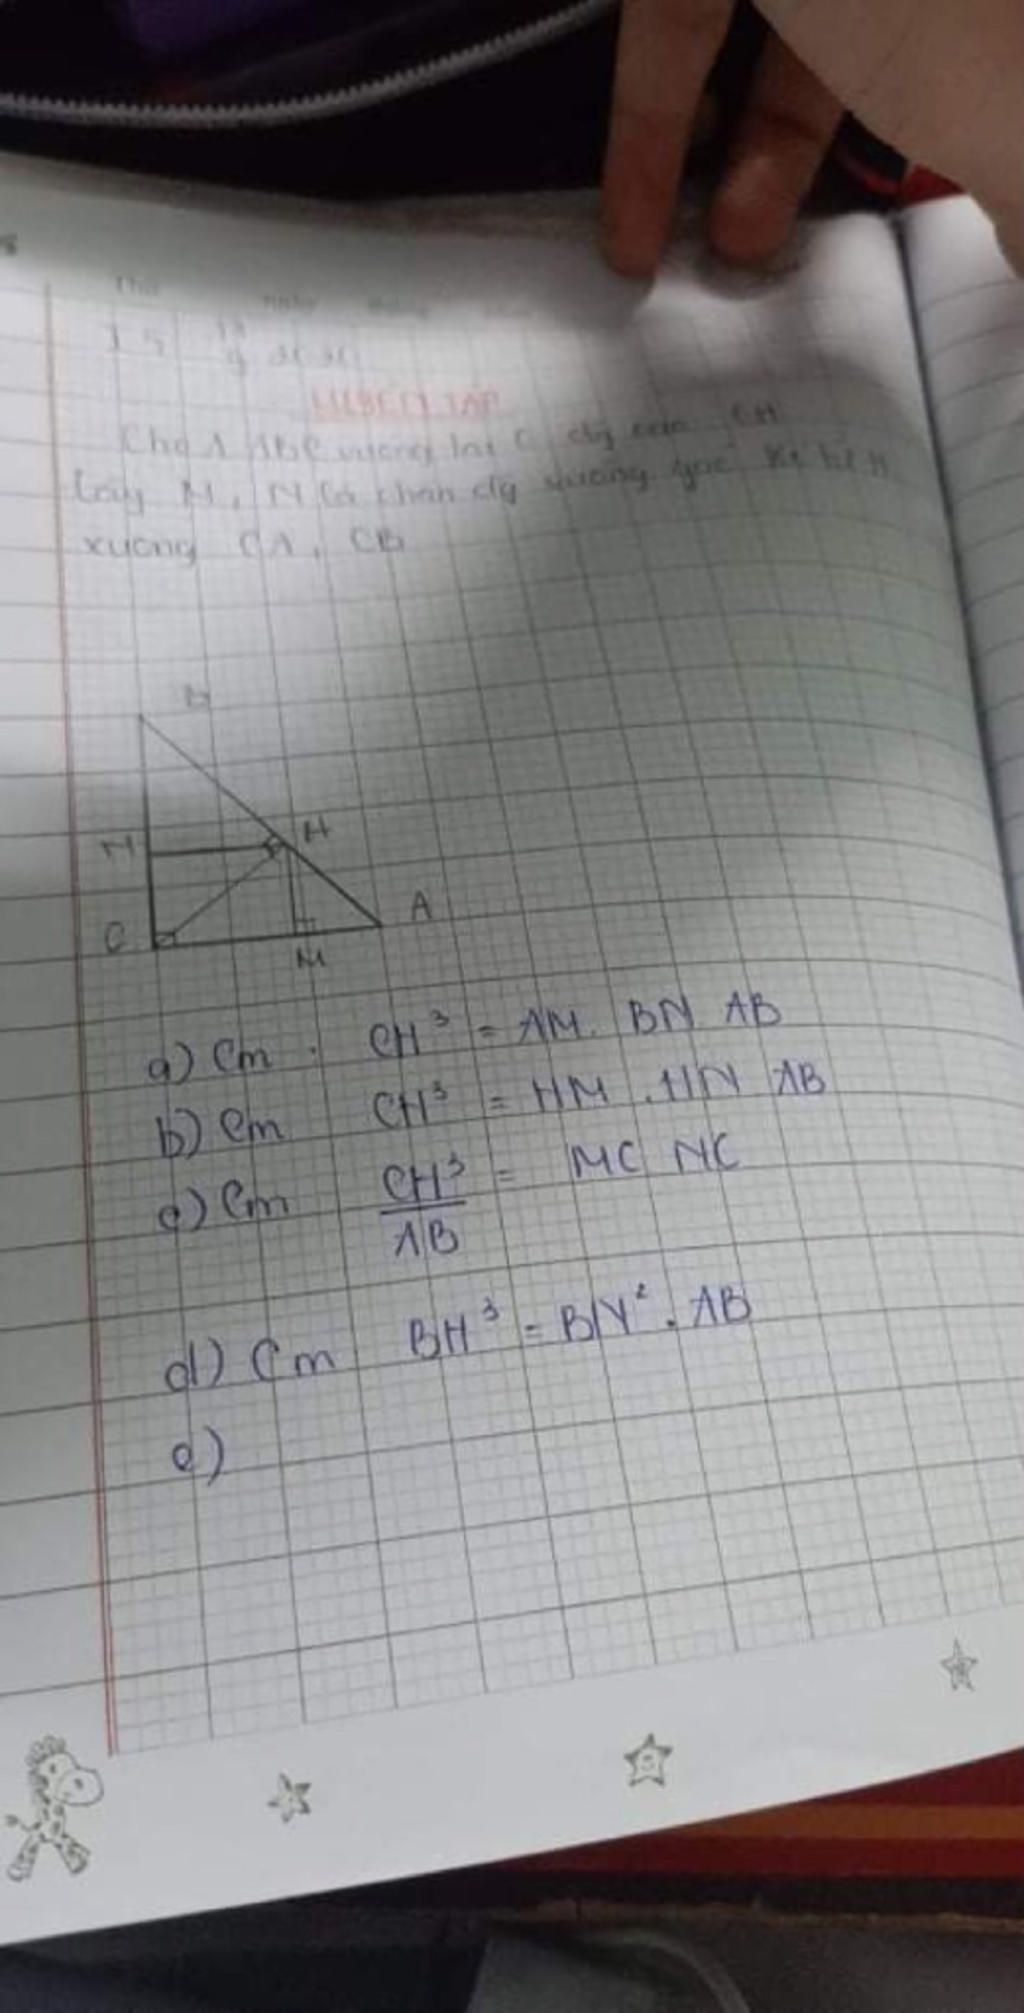 LUYỆN TẬP
Cho Δ ABC vuông tại C đg cao CH
Lấy M, N là chân đg vuông góc kẻ từ H
xuong CA, CB
B
N
H
C
A
M
a) Cm. CH³ = AM. BN. AB
b) Cm CH³ = HM. HN AB
c) Cm CH³/AB = MC NC
d) Cm BH³ = BN². AB
e)